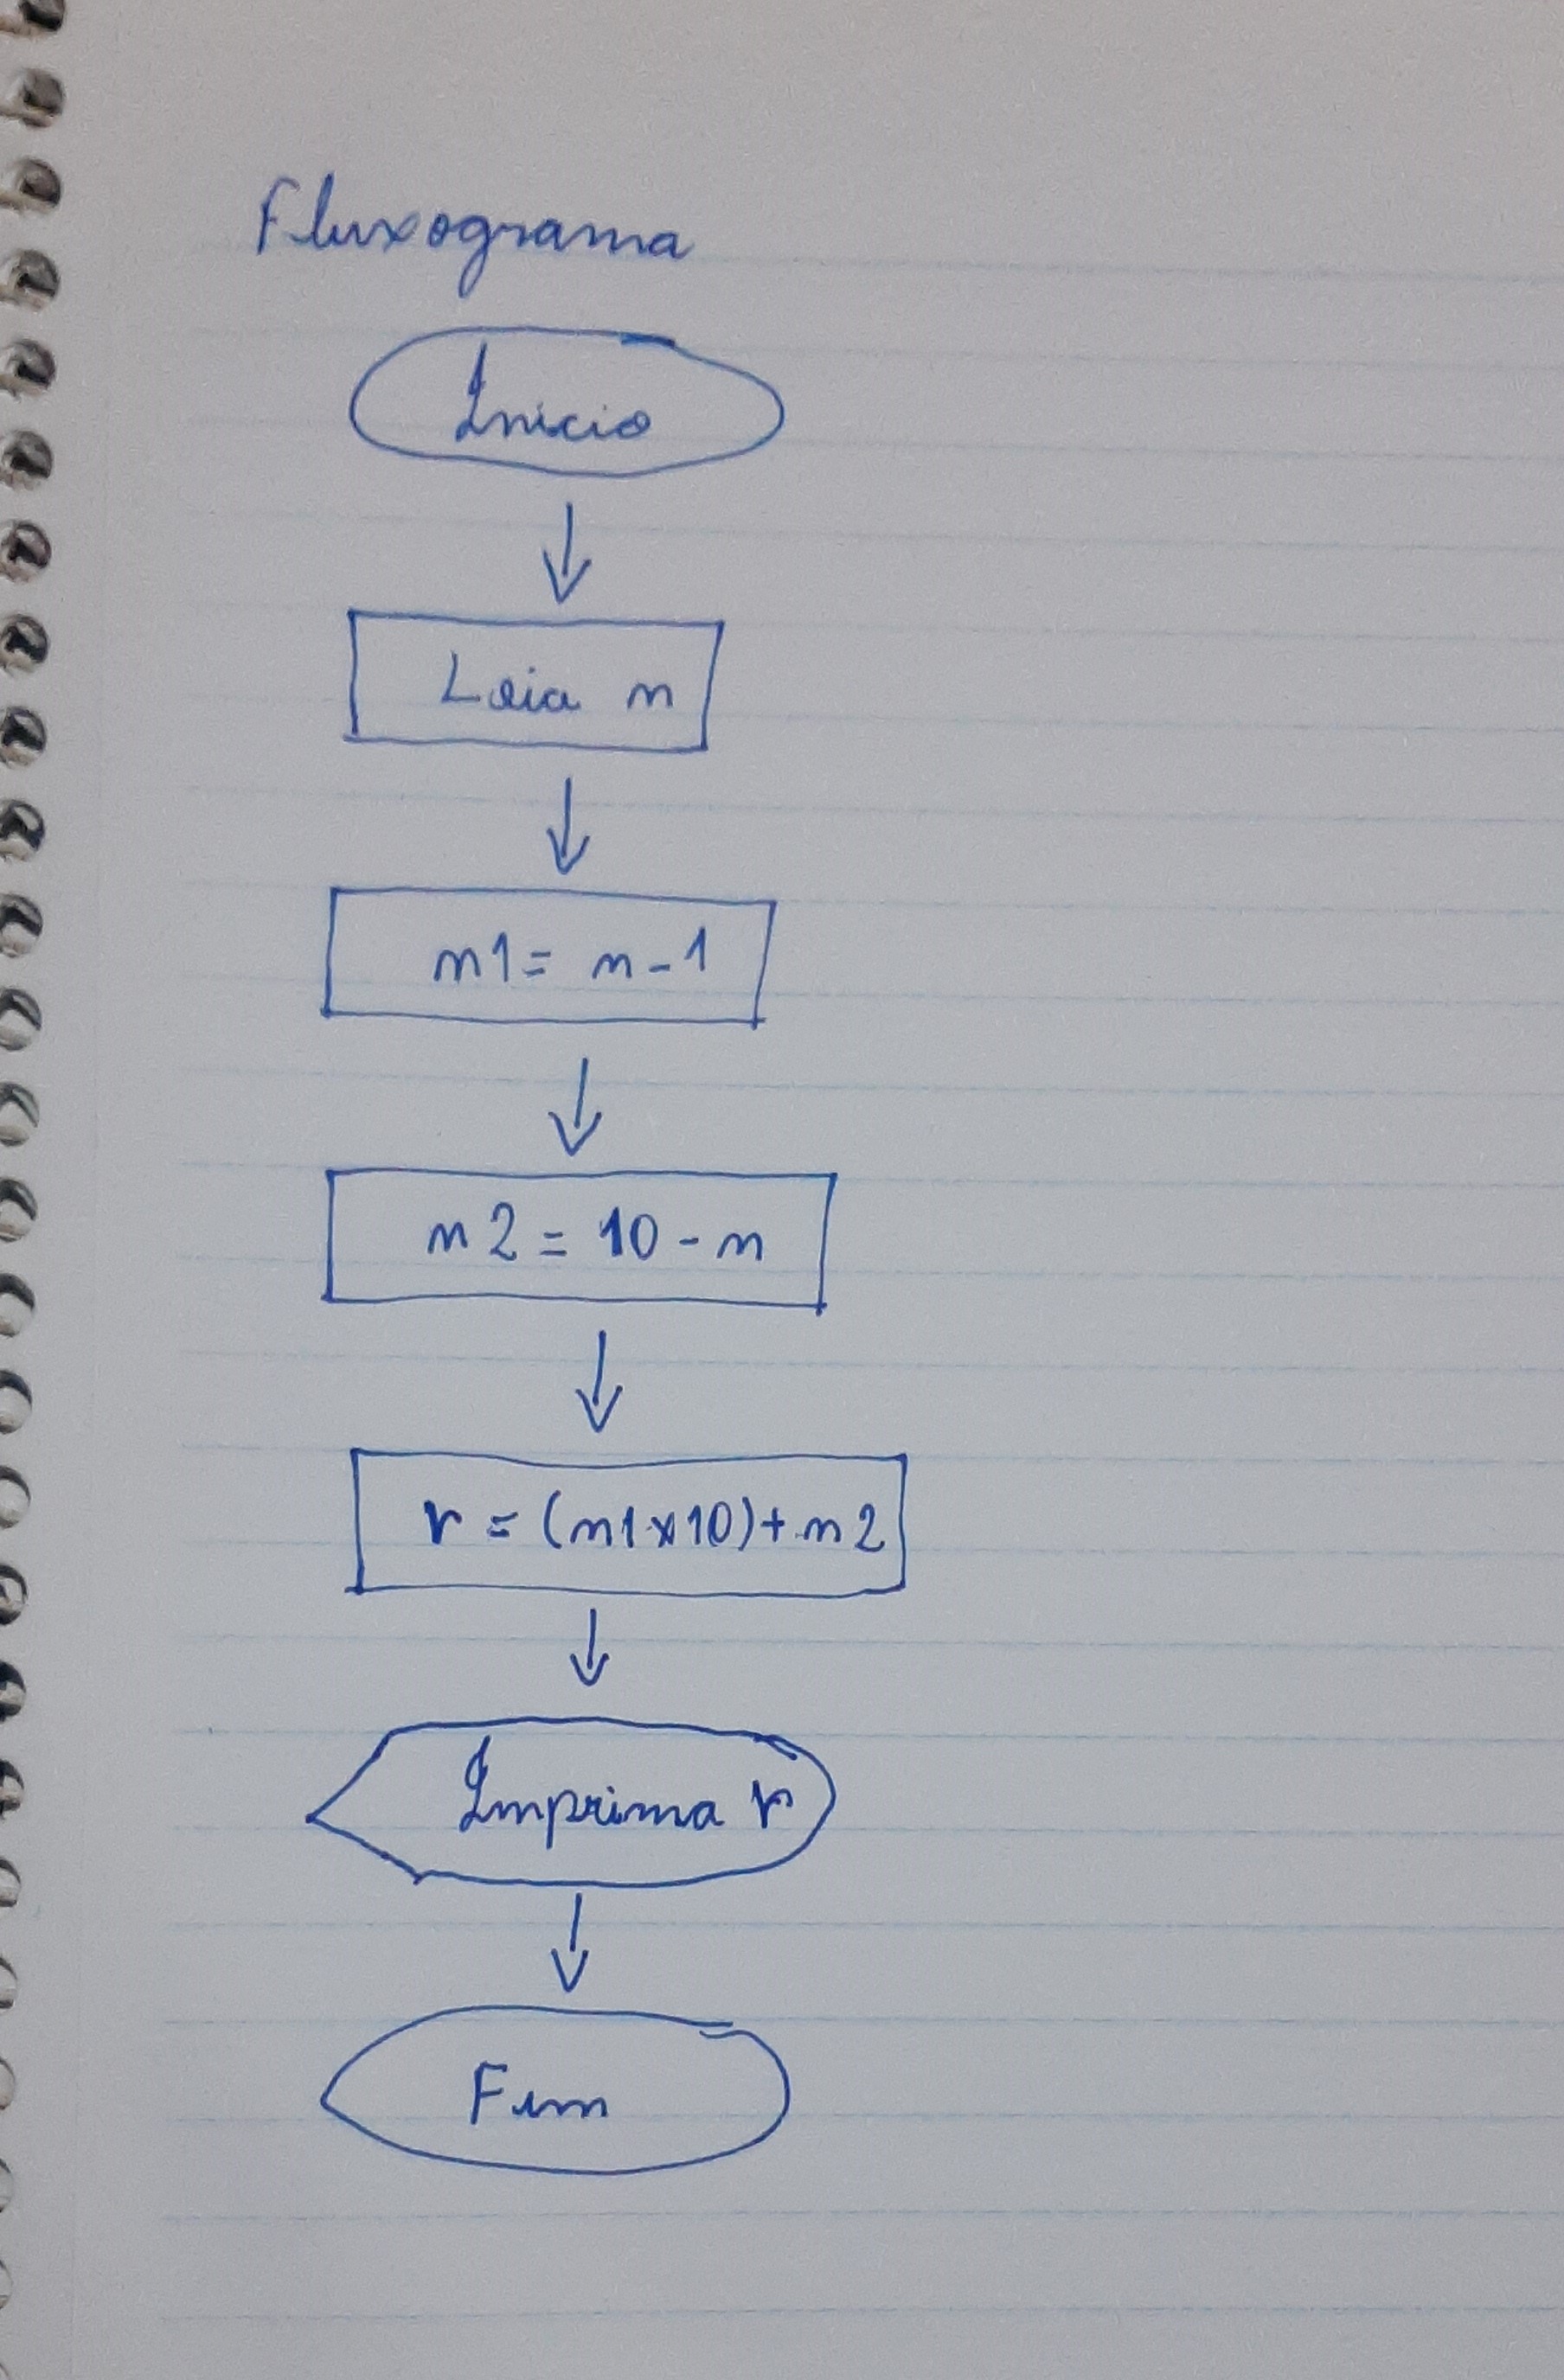 Fluxograma
Inicio
Leia n
n1 = n - 1
n2 = 10 - n
r = (n1x10) + n2
Imprima r
Fim